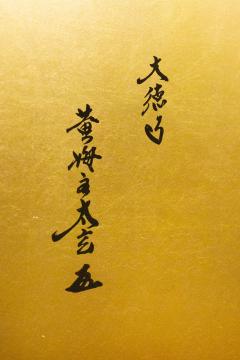 大徳寺
黄梅主太玄五